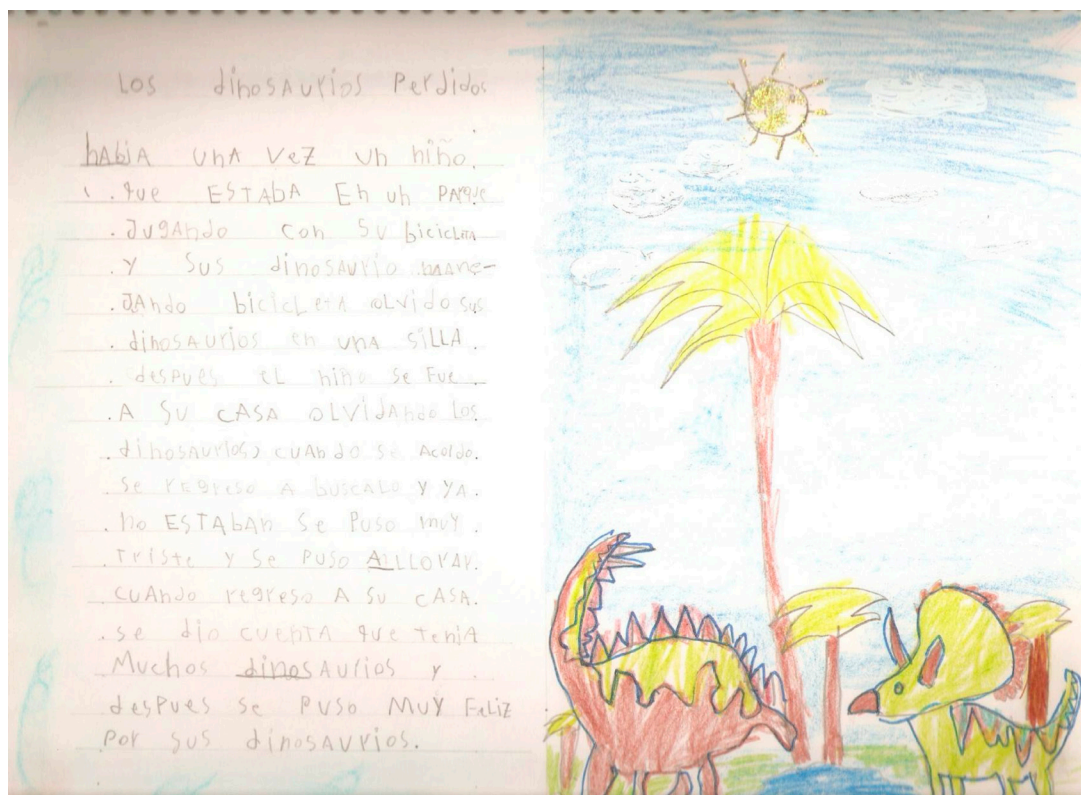 Los dinosaurios Perdidos
hAbiA unA Vez un niño.
. que ESTAbA En un PArque
. JugAndo con Su bicicLetA
. Y Sus dinosAurio mAne-
. JAndo bicicLetA oLvido sus
. dinosAurios en unA SiLLA
. desPues eL niño Se Fue.
. A Su CASA oLvidAndo Los
. dinosAurios) cuAndo se Acoldo.
. Se regreso A buscALo Y YA.
. no ESTAbAn Se Puso muy.
. Triste y Se Puso ALLLorAr.
. cuAndo regreso A Su CASA.
. se dio cuenTA que TeniA
Muchos dinosAurios y
desPues Se Puso Muy FeLiz
Por sus dinosAurios.